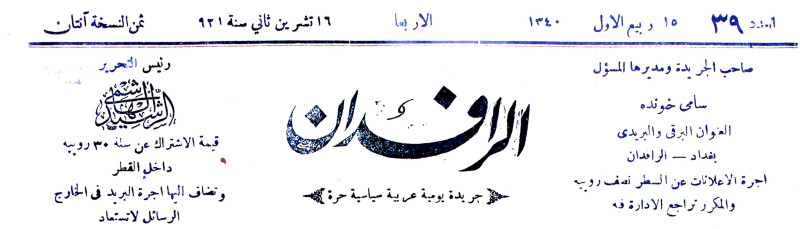 العدد ٣٩ ١٥ ربيع الاول ١٣٤٠ الاربعا ١٦ تشرين ثاني سنة ٩٢١ ثمن النسخة آنتان
صاحب الجريدة ومديرها المسؤل
سامي خونده
العنوان البرقي والبريدي
بغداد — الرافدان
اجرة الاعلانات عن السطر نصف روبيه
والمكرر تراجع الادارة فيه
الرافدان
جريدة يومية عربية سياسية حرة
رئيس التحرير
الهاشمي
قيمة الاشتراك عن سنة ٣٠ روبيه
داخل القطر
وتضاف اليها اجرة البريد في الخارج
الرسائل لاتستعاد